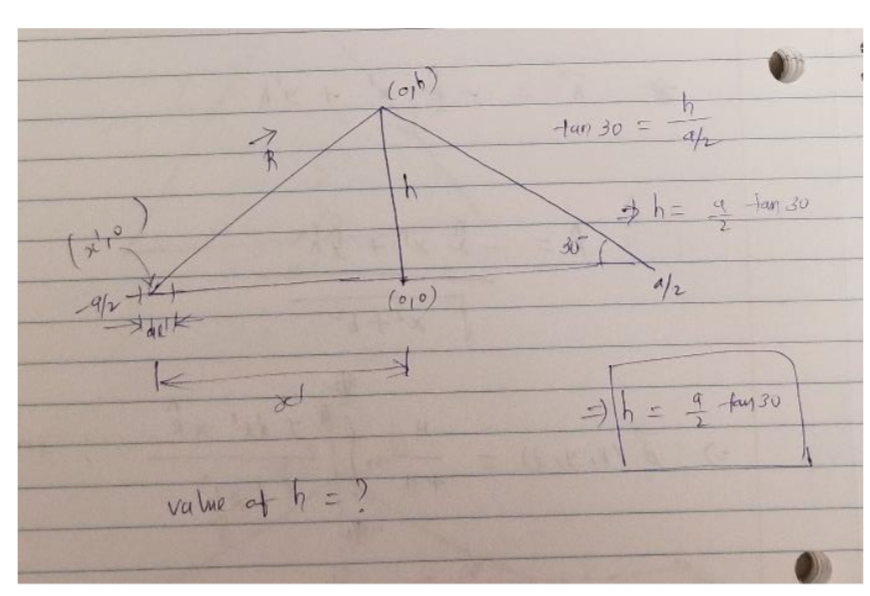 (0,h)
tan 30 = h / a/2
R
h
⇒ h = a/2 tan 30
(x', 0)
30°
-a/2
(0,0)
a/2
dx'
x'
⇒ h = a/2 tan 30
value of h = ?